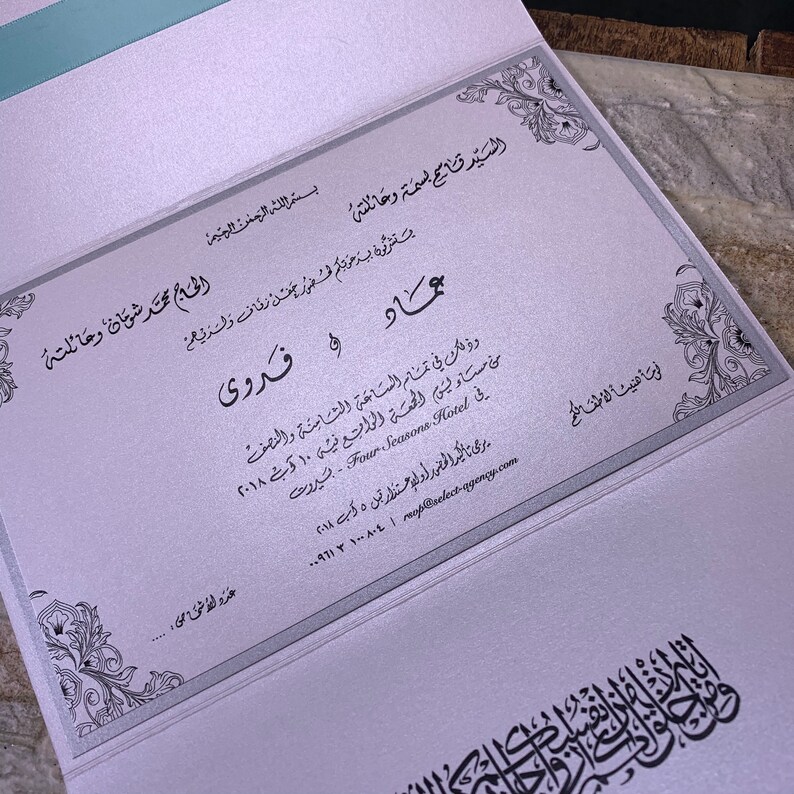 بسم الله الرحمن الرحيم
السيد قاسم بسمة وعائلته
الحاج محمد شومان وعائلته
يتشرفون بدعوتكم لحضور حفل زفاف ولديهما
عماد و فدوى
وذلك في تمام الساعة الثامنة والنصف
من مساء يوم الجمعة الواقع فيه ١٠ آب ٢٠١٨
في Four Seasons Hotel - بيروت
نوماً هنيئاً لأطفالكم
يرجى تأكيد الحضور أو الإعتذار قبل ٥ آب ٢٠١٨
rsvp@select-agency.com | ٠٠٩٦١ ٣ ١٠٠ ٨٠٤
عدد الأشخاص : ....
ومن آياته أن خلق لكم من أنفسكم أزواجا